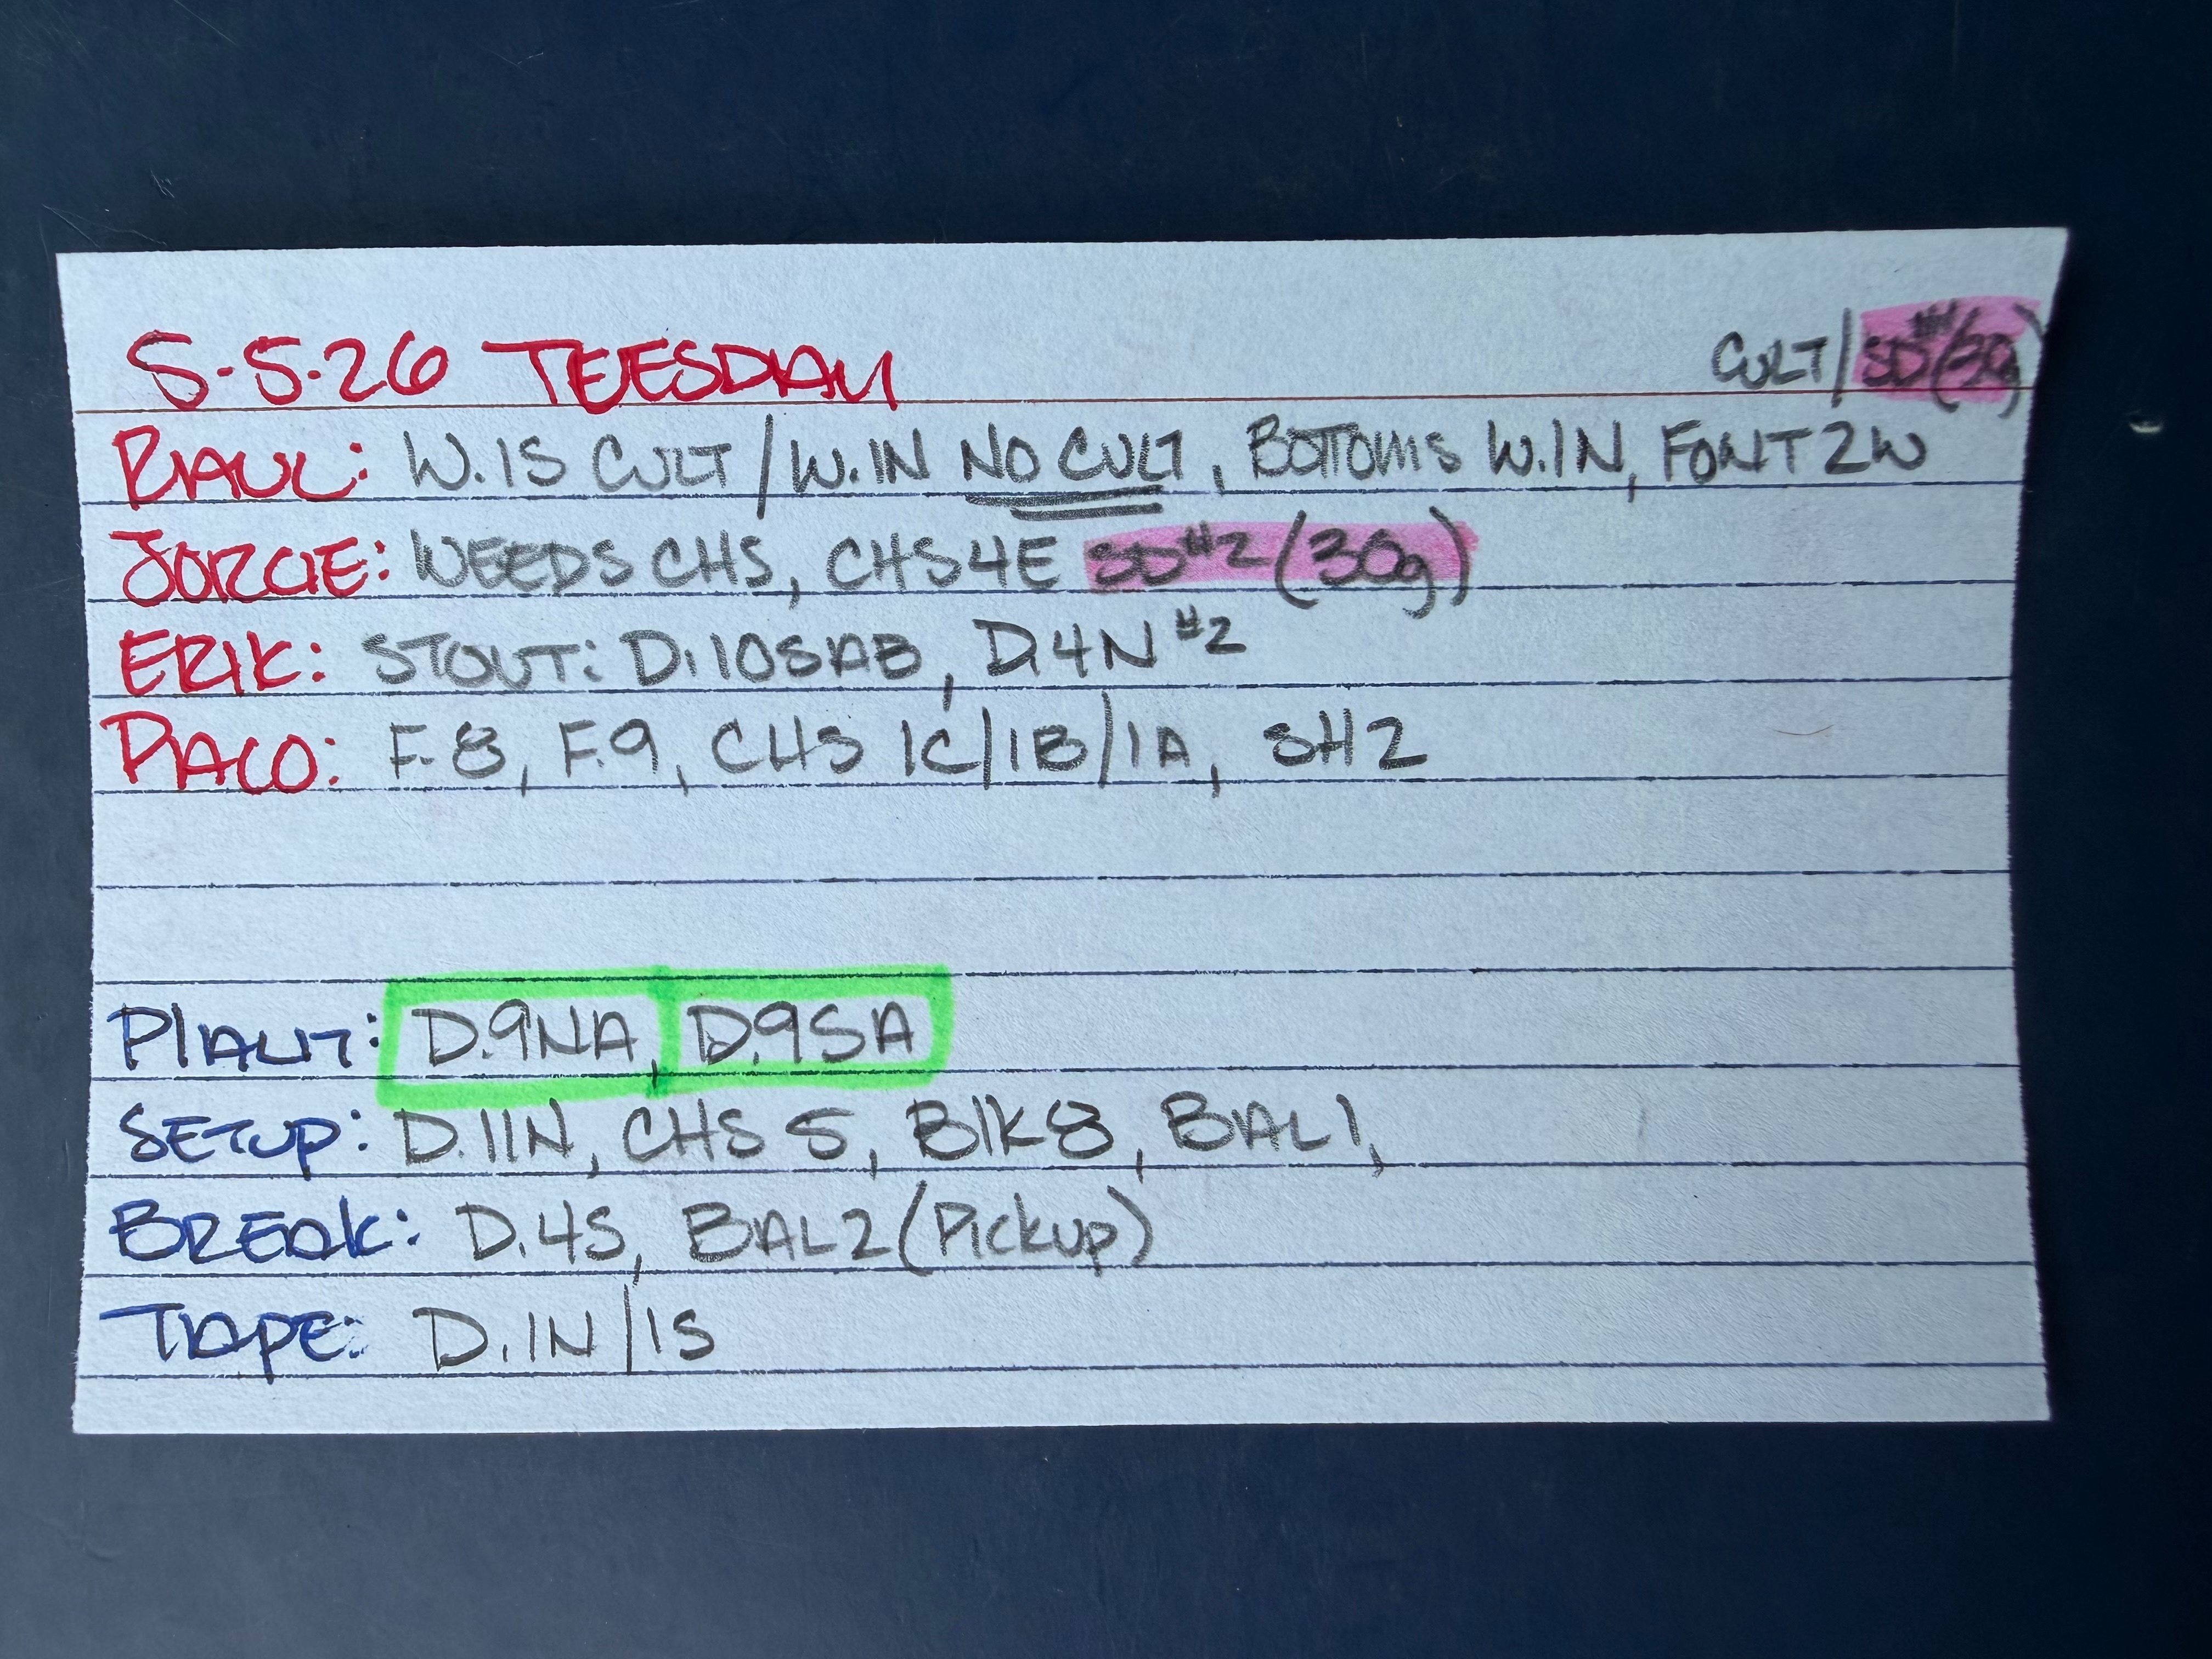 5-5-26 TUESDAY CULT/SD#1(30g)
RAUL: W.1S CULT/W.1N NO CULT, BOTTOMS W.1N, FONT 2W
JORGE: WEEDS CHS, CHS4E SD#2(30g)
ERIK: STOUT: D.10SAB, D.4N#2
PACO: F.8, F.9, CHS 1C/1B/1A, SH2
PlANT: D.9NA, D.9SA
SETUP: D.11N, CHS 5, BlK8, BAL1,
BREAK: D.4S, BAL2 (Pickup)
TAPE: D.1N/1S